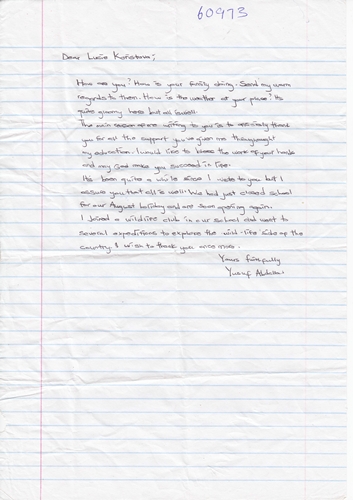 60973
Dear Lucie
How are you? How is your family doing. Send my warm
regards to them. How is the weather at your place? Its
quite here but all is well.
The main reason of me writing to you is to sincerely thank
you for all the support you've given me throughout
my education. I would like to bless the work of your hands
and may God make you succeed in life.
Its been quite a while since I wrote to you but I
assure you that all is well. We had just closed school
for our August holiday and are soon opening again.
I joined a wildlife club in our school and went to
several expeditions to explore the wild-life side of the
country. I wish to thank you once more.
Yours faithfully
Yusuf